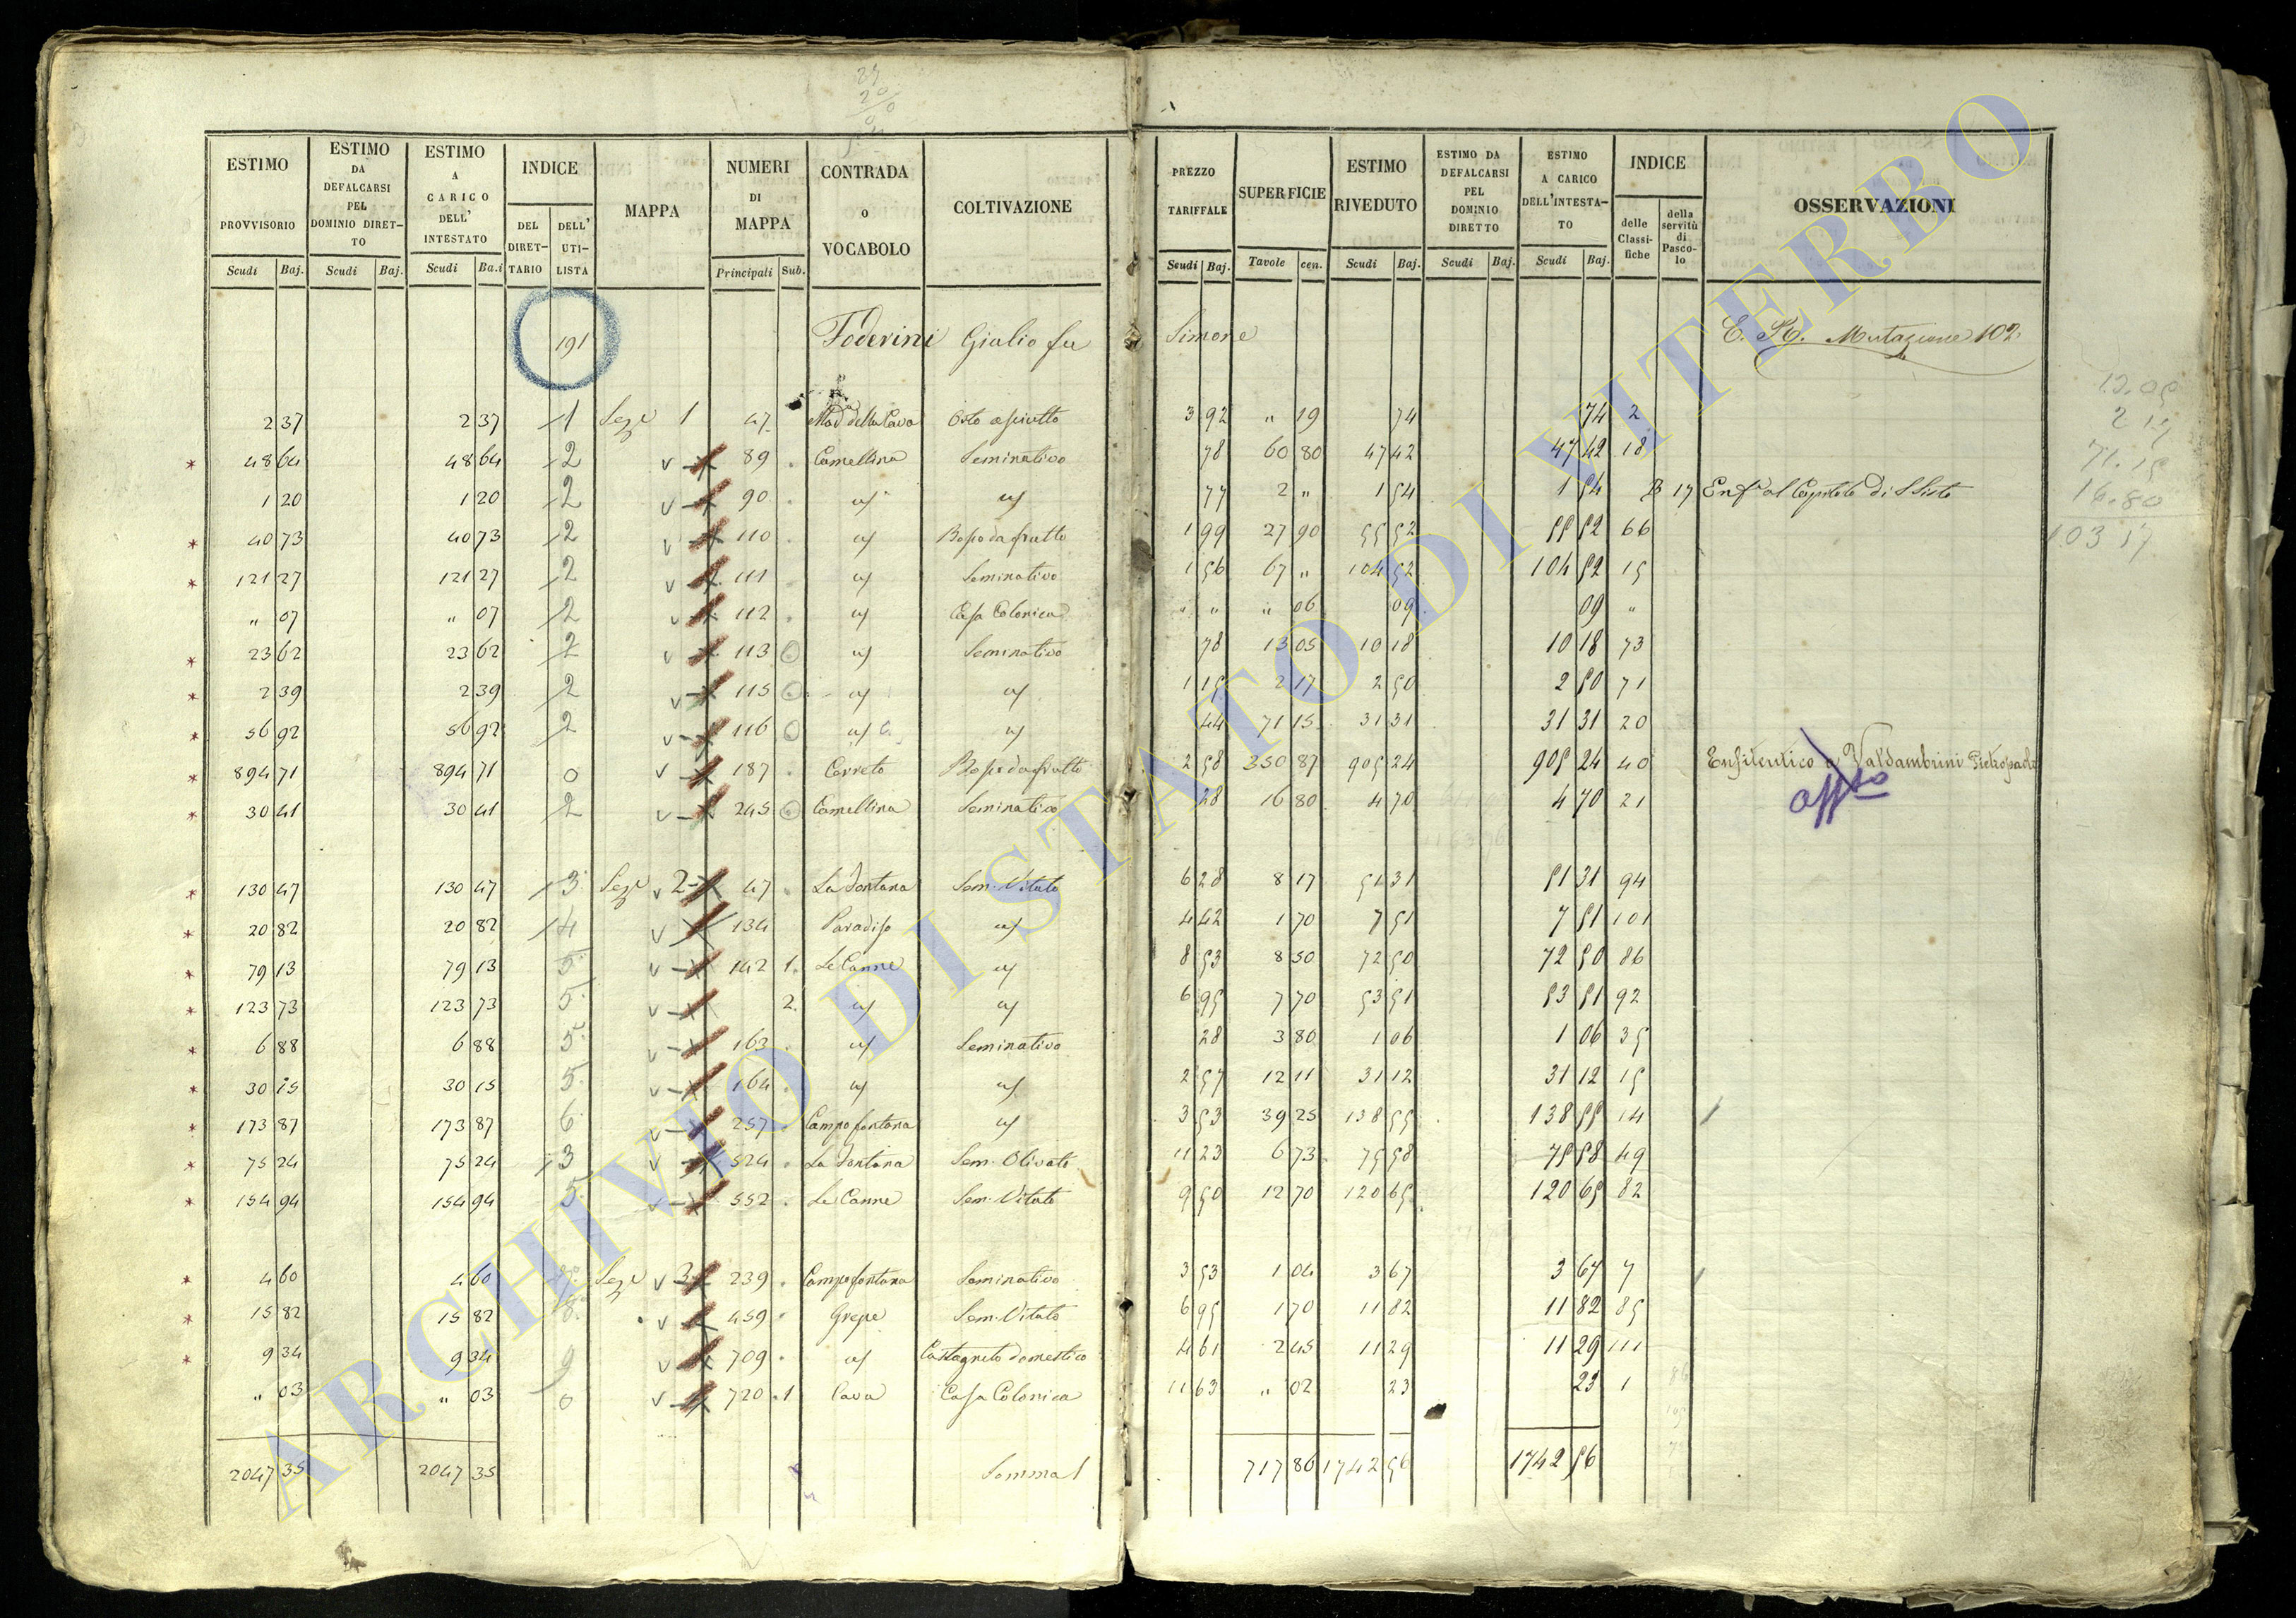 ESTIMO PROVVISORIO Scudi Baj. | ESTIMO DA DEFALCARSI PEL DOMINIO DIRET-TO Scudi Baj. | ESTIMO A CARICO DELL' INTESTATO Scudi Ba.i | INDICE DEL DIRET-TARIO DELL' UTI-LISTA | MAPPA | NUMERI DI MAPPA Principali Sub. | CONTRADA O VOCABOLO | COLTIVAZIONE | PREZZO TARIFFALE Scudi Baj. | SUPERFICIE Tavole cen. | ESTIMO RIVEDUTO Scudi Baj. | ESTIMO DA DEFALCARSI PEL DOMINIO DIRETTO Scudi Baj. | ESTIMO A CARICO DELL'INTESTA-TO Scudi Baj. | INDICE delle Classi-fiche della servitù di Pasco-lo | OSSERVAZIONI
191 Foderini Giulio fu Simone E. R. Mutazione 102
2 37 | 2 37 | 1 | Sez.e 1 | 47 | Mad. della Cava | Orto asciutto | 3 92 | " 19 | 74 | 74 | 2
* 48 64 | 48 64 | 2 | v | 89 | Camellina | Seminativo | 78 | 60 80 | 47 42 | 47 42 | 18
1 20 | 1 20 | 2 | v | 90 | " | " | 77 | 2 " | 1 54 | 1 54 | B 17 | Enf.a al Capitolo di S Sisto
* 40 73 | 40 73 | 2 | v | 110 | " | Bosco da frutto | 1 99 | 27 90 | 55 52 | 55 52 | 66
* 121 27 | 121 27 | 2 | v | 111 | " | Seminativo | 1 56 | 67 " | 104 52 | 104 52 | 15
" 07 | " 07 | 2 | v | 112 | " | Casa Colonica | " " | " 06 | 09 | 09 | "
* 23 62 | 23 62 | 2 | v | 113 | " | Seminativo | 78 | 13 05 | 10 18 | 10 18 | 73
* 2 39 | 2 39 | 2 | v | 115 | " | " | 1 15 | 2 17 | 2 50 | 2 50 | 71
* 56 92 | 56 92 | 2 | v | 116 | " | " | 44 | 71 15 | 31 31 | 31 31 | 20
* 894 71 | 894 71 | 0 | v | 187 | Cerreto | Bosco da frutto | 2 58 | 350 87 | 905 24 | 905 24 | 40 | Enfiteutico a Valdambrini Pietropaolo
aff.to
* 30 41 | 30 41 | 2 | v | 245 | Camellina | Seminativo | 28 | 16 80 | 4 70 | 4 70 | 21
* 130 47 | 130 47 | 3 | Sez.e v 2 | 47 | La Fontana | Sem. Vitato | 6 28 | 8 17 | 51 31 | 51 31 | 94
* 20 82 | 20 82 | 4 | v | 134 | Paradiso | " | 4 42 | 1 70 | 7 51 | 7 51 | 101
* 79 13 | 79 13 | 5 | v | 142 1. | Le Canne | " | 8 53 | 8 50 | 72 50 | 72 50 | 86
* 123 73 | 123 73 | 5 | v | 2. | " | " | 6 95 | 7 70 | 53 51 | 53 51 | 92
* 6 88 | 6 88 | 5 | v | 163 | " | Seminativo | 28 | 3 80 | 1 06 | 1 06 | 35
* 30 15 | 30 15 | 5 | v | 164 | " | " | 2 57 | 12 11 | 31 12 | 31 12 | 15
* 173 87 | 173 87 | 6 | v | 257 | Campo fontana | " | 3 53 | 39 25 | 138 55 | 138 55 | 14
* 75 24 | 75 24 | 3 | v | 524 | La Fontana | Sem. Olivato | 11 23 | 6 73 | 75 58 | 75 58 | 49
* 154 94 | 154 94 | 5 | v | 552 | Le Canne | Sem. Vitato | 9 50 | 12 70 | 120 65 | 120 65 | 82
* 4 60 | 4 60 | Sez.e v 3 | 239 | Campo fontana | Seminativo | 3 53 | 1 04 | 3 67 | 3 67 | 7
* 15 82 | 15 82 | 8 | v | 459 | Grepe | Sem. Vitato | 6 95 | 1 70 | 11 82 | 11 82 | 85
* 9 34 | 9 34 | 9 | v | 709 | " | Castagneto domestico | 4 61 | 2 45 | 11 29 | 11 29 | 111
" 03 | " 03 | 0 | v | 720 1 | Cava | Casa Colonica | 11 63 | " 02 | 23 | 23 | 1
2047 35 | 2047 35 | Somma | 717 86 | 1742 56 | 1742 56
12.05
2 17
71.15
16.80
103 17
ARCHIVIO DI STATO DI VITERBO